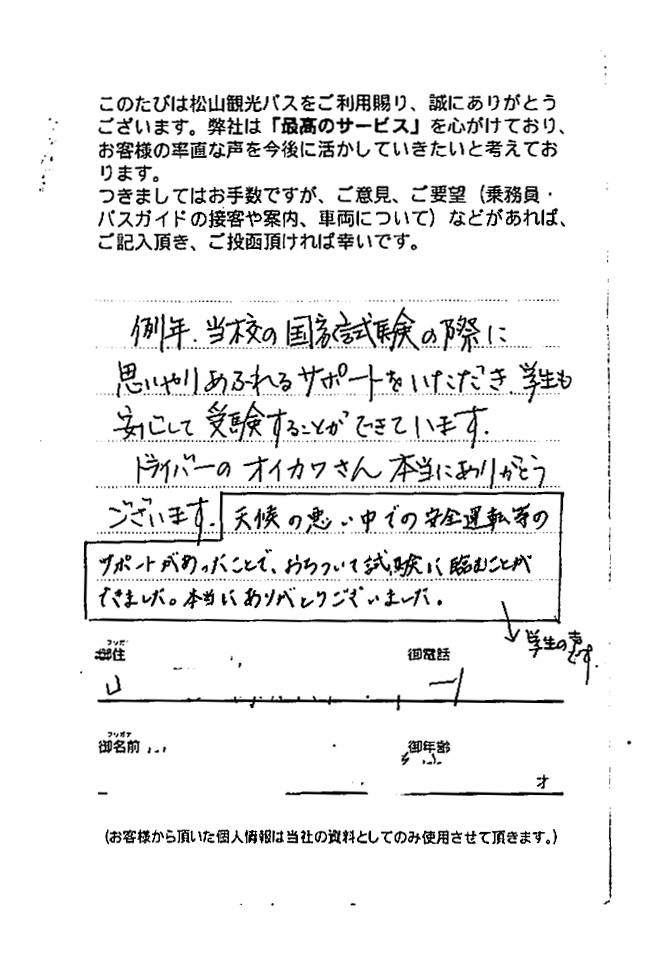 このたびは松山観光バスをご利用賜り、誠にありがとう
ございます。弊社は「最高のサービス」を心がけており、
お客様の率直な声を今後に活かしていきたいと考えてお
ります。
つきましてはお手数ですが、ご意見、ご要望（乗務員・
バスガイドの接客や案内、車両について）などがあれば、
ご記入頂き、ご投函頂ければ幸いです。
例年、当校の国家試験の際に
思いやりあふれるサポートをいただき、学生も
安心して受験することができています。
ドライバーのオイカワさん本当にありがとう
ございます。
天候の悪い中での安全運転等の
サポートがあったことで、おちついて試験に臨むことが
できました。本当にありがとうございました。
学生の声
です。
フリガナ
御住
御電話
フリガナ
御名前
御年齢
才
（お客様から頂いた個人情報は当社の資料としてのみ使用させて頂きます。）